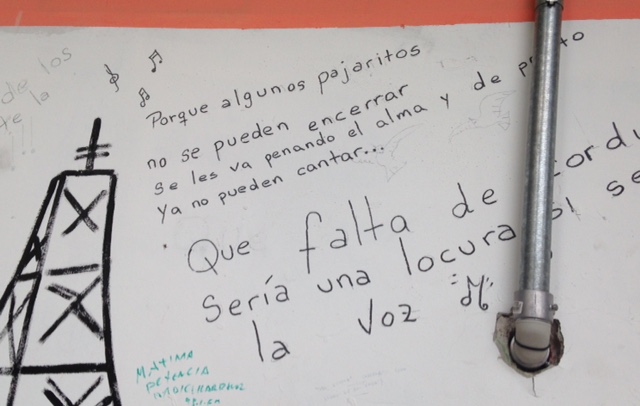 de los
te la
Porque algunos pajaritos
no se pueden encerrar
se les va penando el alma y de p to
Ya no pueden cantar...
Que falta de cordu
Sería una locura si se
la voz "M"
MAXIMA
POTENCIA